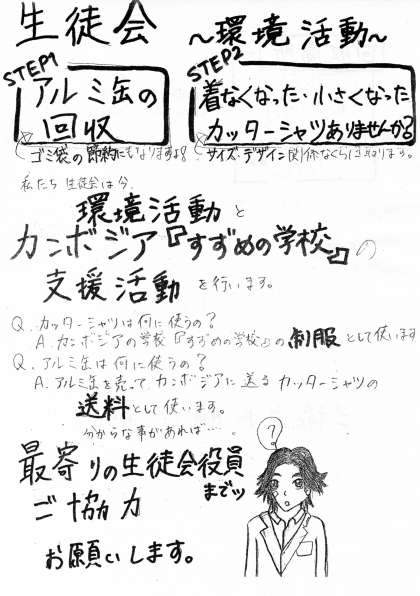 生徒会 ～環境活動～
STEP1
アルミ缶の
回収
ゴミ袋の節約にもなりますよ!
STEP2
着なくなった・小さくなった
カッターシャツありませんか?
サイズ・デザイン関係なくうけ取ります。
私たち生徒会は今、
環境活動と
カンボジア『すずめの学校』の
支援活動を行います。
Q.カッターシャツは何に使うの?
A.カンボジアの学校『すずめの学校』の制服として使います
Q.アルミ缶は何に使うの?
A.アルミ缶を売ってカンボジアに送るカッターシャツの
送料として使います。
分からな事があれば…。
最寄りの生徒会役員
までッ
ご協力
お願いします。
?